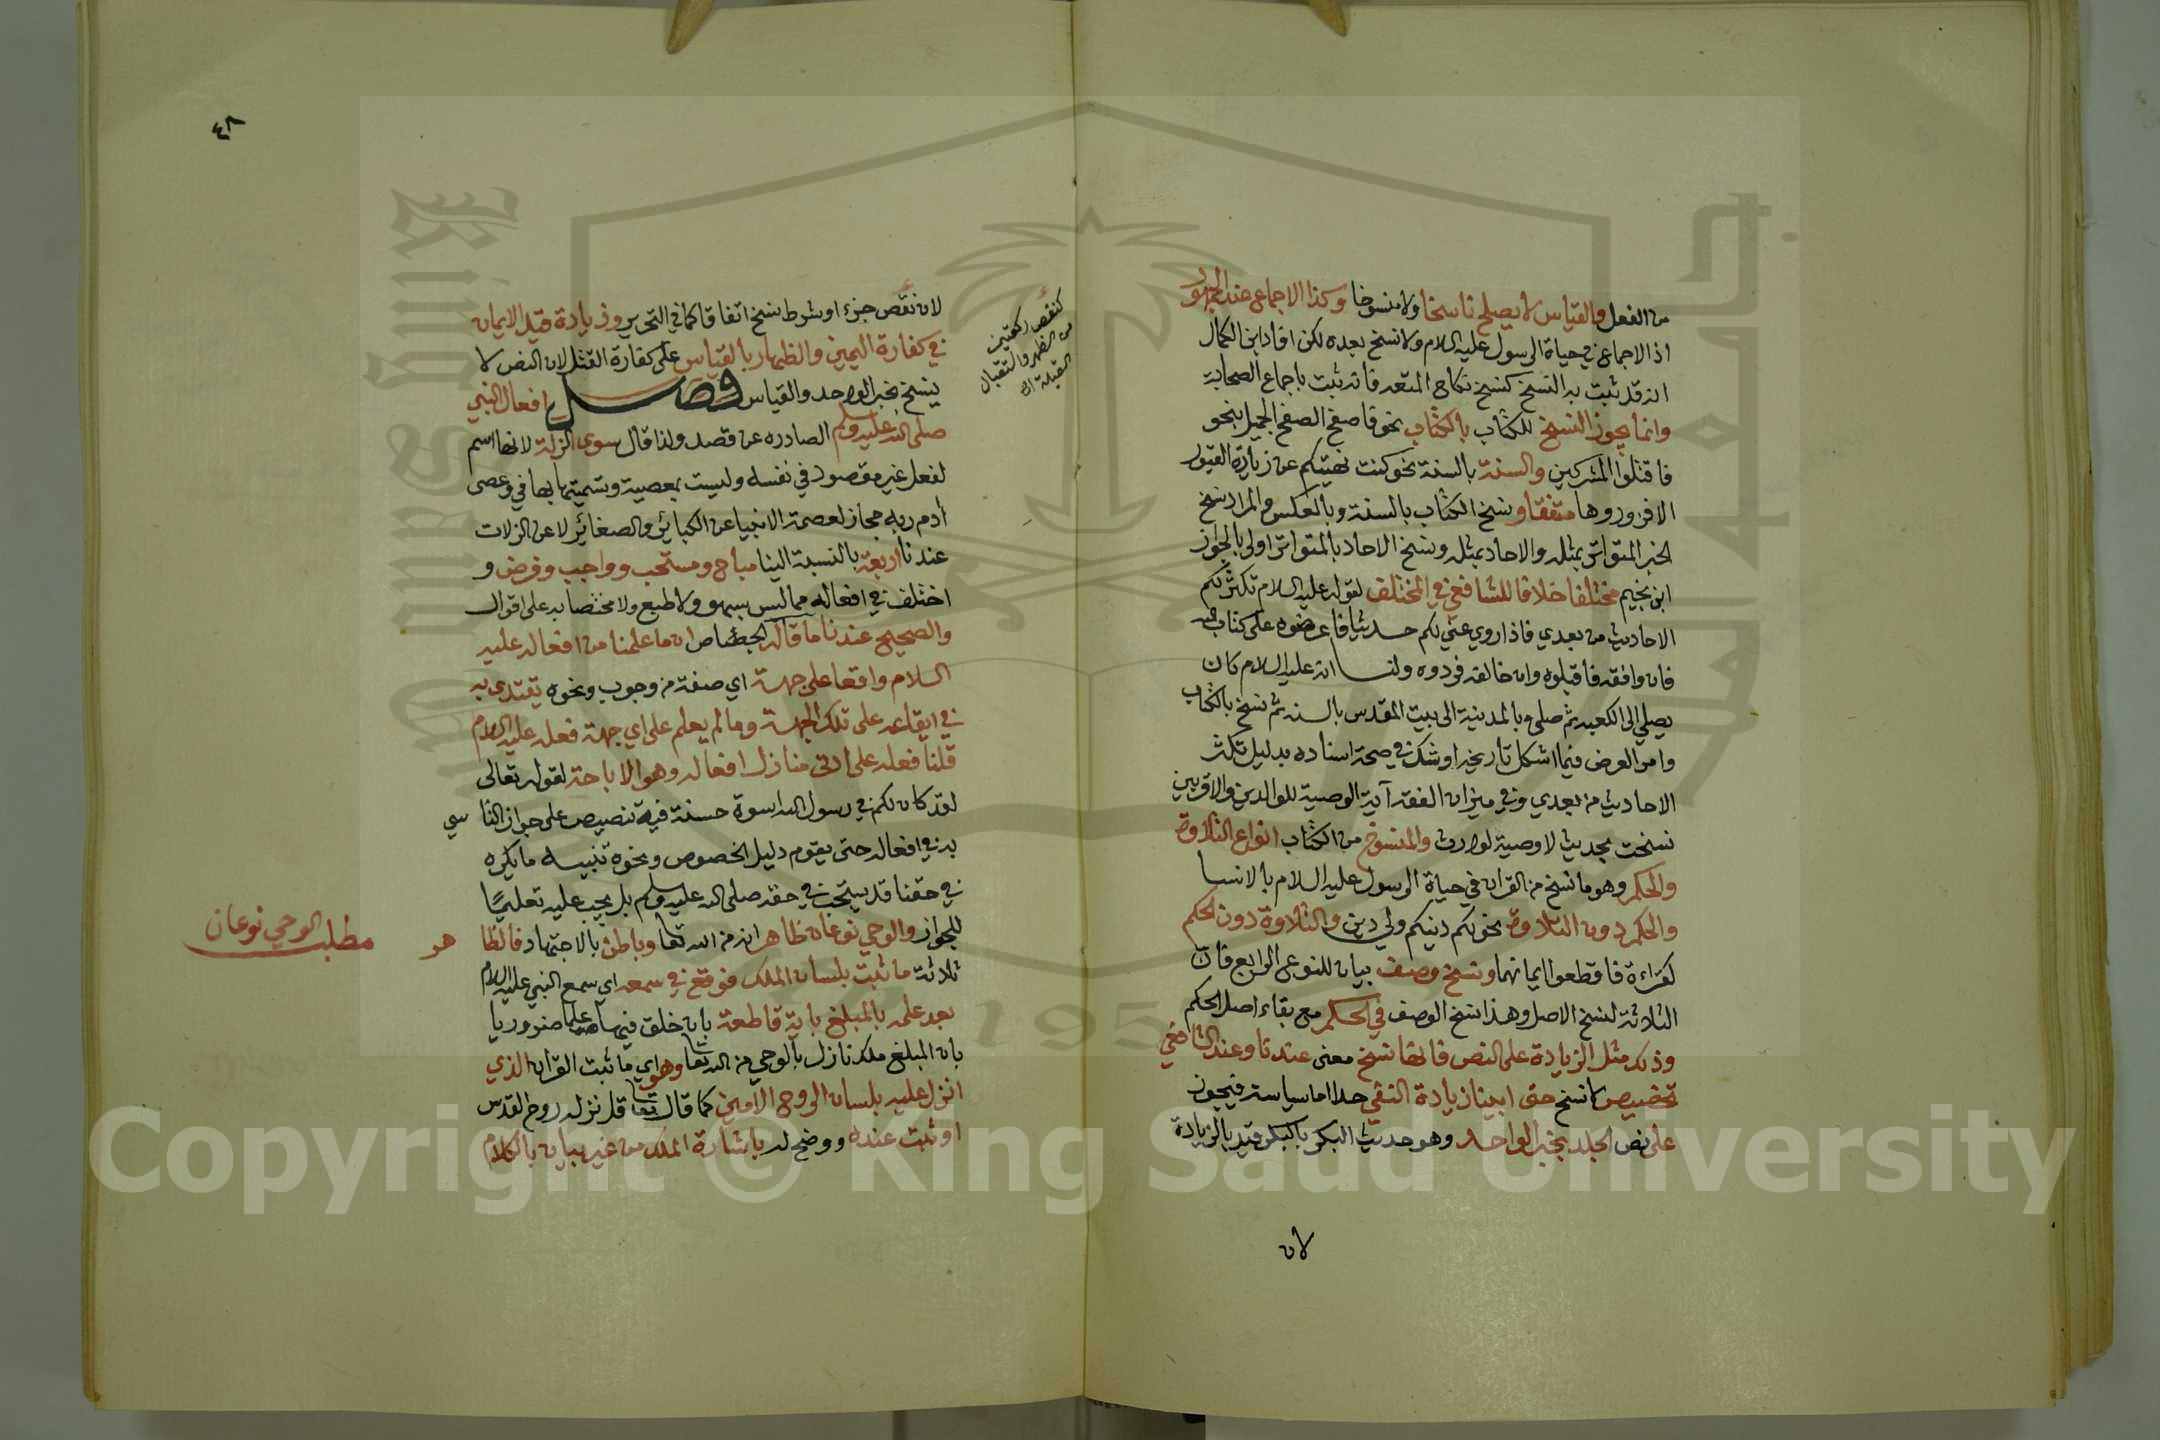 من الفعل والقياس لا يصلح ناسخا ولا منسوخا وكذا الاجماع عند الجمهور
اذ الاجماع في حياة الرسول عليه السلام ولا نسخ بعده لكن افاد ابن الكمال
انه قد ثبت به النسخ كنسخ نكاح المتعه فانه ثبت باجماع الصحابة
وانما يجوز النسخ للكتاب بالكتاب نحو فاصفح الصفح الجميل بنحو
فاقتلوا المشركين والسنة بالسنة نحو كنت نهيتكم عن زيارة القبور
الا فزوروها متفقا ونسخ الكتاب بالسنة وبالعكس والمراد نسخ
الخبر المتواتر بمثله والاحاد بمثله ونسخ الاحاد بالمتواتر اولى بالجواز
ابن نجيم مختلفا خلافا للشافعي في المختلف لقوله عليه السلام تكثر لكم
الاحاديث من بعدي فاذا روي عني لكم حديثا فاعرضوه على كتاب الله
فان وافقه فاقبلوه وان خالفه فردوه ولنا انه عليه السلام كان
يصلي الى الكعبه ثم صلى وبالمدينة الى بيت المقدس بالسنه ثم نسخ بالكتاب
وامر العرض فيما اشكل تاريخه او شك في صحة اسناده بدليل تكثر
الاحاديث من بعدي وفي ميزان الفقه آية الوصية للوالدين والاقربين
نسخت بحديث لا وصية لوارث والمنسوخ من الكتاب انواع التلاوة
والحكم وهو ما نسخ من القران في حياة الرسول عليه السلام بالانسا
والحكم دون التلاوة نحو لكم دينكم ولي دين والتلاوة دون الحكم
كقراءة فاقطعوا ايمانهما ونسخ وصف بيان للنوع الرابع فان
الثلاثة لنسخ الاصل وهذا نسخ الوصف في الحكم مع بقاء اصل الحكم
وذلك مثل الزيادة على النص فانها نسخ معنى عندنا وعند الشافعي
تخصيص لا نسخ حتى ابينا زيادة النفي حدا اما سياسة فيجوز
على نص الجلد بخبر الواحد وهو حديث البكر بالبكر قيد بالزيادة
لان
٤٨
لان نقص جزء او شرط نسخ اتفاقا كما في التحرير وزيادة قيد الايمان
في كفارة اليمين والظهار بالقياس على كفارة القتل لان النص لا
ينسخ بخبر الواحد والقياس فصل افعال النبي
صلى الله عليه وسلم الصادره عن قصد ولذا قال سوى الزلة لانها اسم
لفعل غير مقصود في نفسه وليست بمعصية وتسميتها بها في وعصى
آدم ربه مجاز لعصمة الانبيا عن الكبائر والصغائر لا عن الزلات
عندنا اربعة بالنسبة الينا مباح ومستحب وواجب وفرض و
اختلف في افعاله مما ليس بسهو ولا طبع ولا مختصا به على اقوال
والصحيح عندنا ما قاله الجصاص ان ما علمنا من افعاله عليه
السلام واقعا على جهة اي صفة من وجوب ونحوه نقتدي به
في ايقاعه على تلك الجهة وما لم يعلم على اي جهة فعله عليه السلام
قلنا فعله على ادنى منازل افعاله وهو الاباحة لقوله تعالى
لقد كان لكم في رسول الله اسوة حسنة فيه تنصيص على جواز التاسي
به في افعاله حتى يقوم دليل الخصوص ونحوه تنبيه ما يكره
في حقنا قد يستحب في حقه صلى الله عليه وسلم بل يجب عليه تعليما
للجواز والوحي نوعان ظاهر انه من الله تعا وباطن بالاجتهاد فالظاهر
ثلاثة ما ثبت بلسان الملك فوقع في سمعه اي سمع النبي عليه السلام
بعد علمه بالمبلغ باية قاطعة بان خلق فيها علما ضروريا
بان المبلغ ملك نازل بالوحي من الله تعا وهو اي ما ثبت القران الذي
انزل عليه بلسان الروح الامين كما قال تعا قل نزله روح القدس
او ثبت عنده ووضح له باشارة الملك من غير بيان بالكلام
كنقص ركعتين
من الظهر واستقبال
القبلة اه
مطلب الوحي نوعان